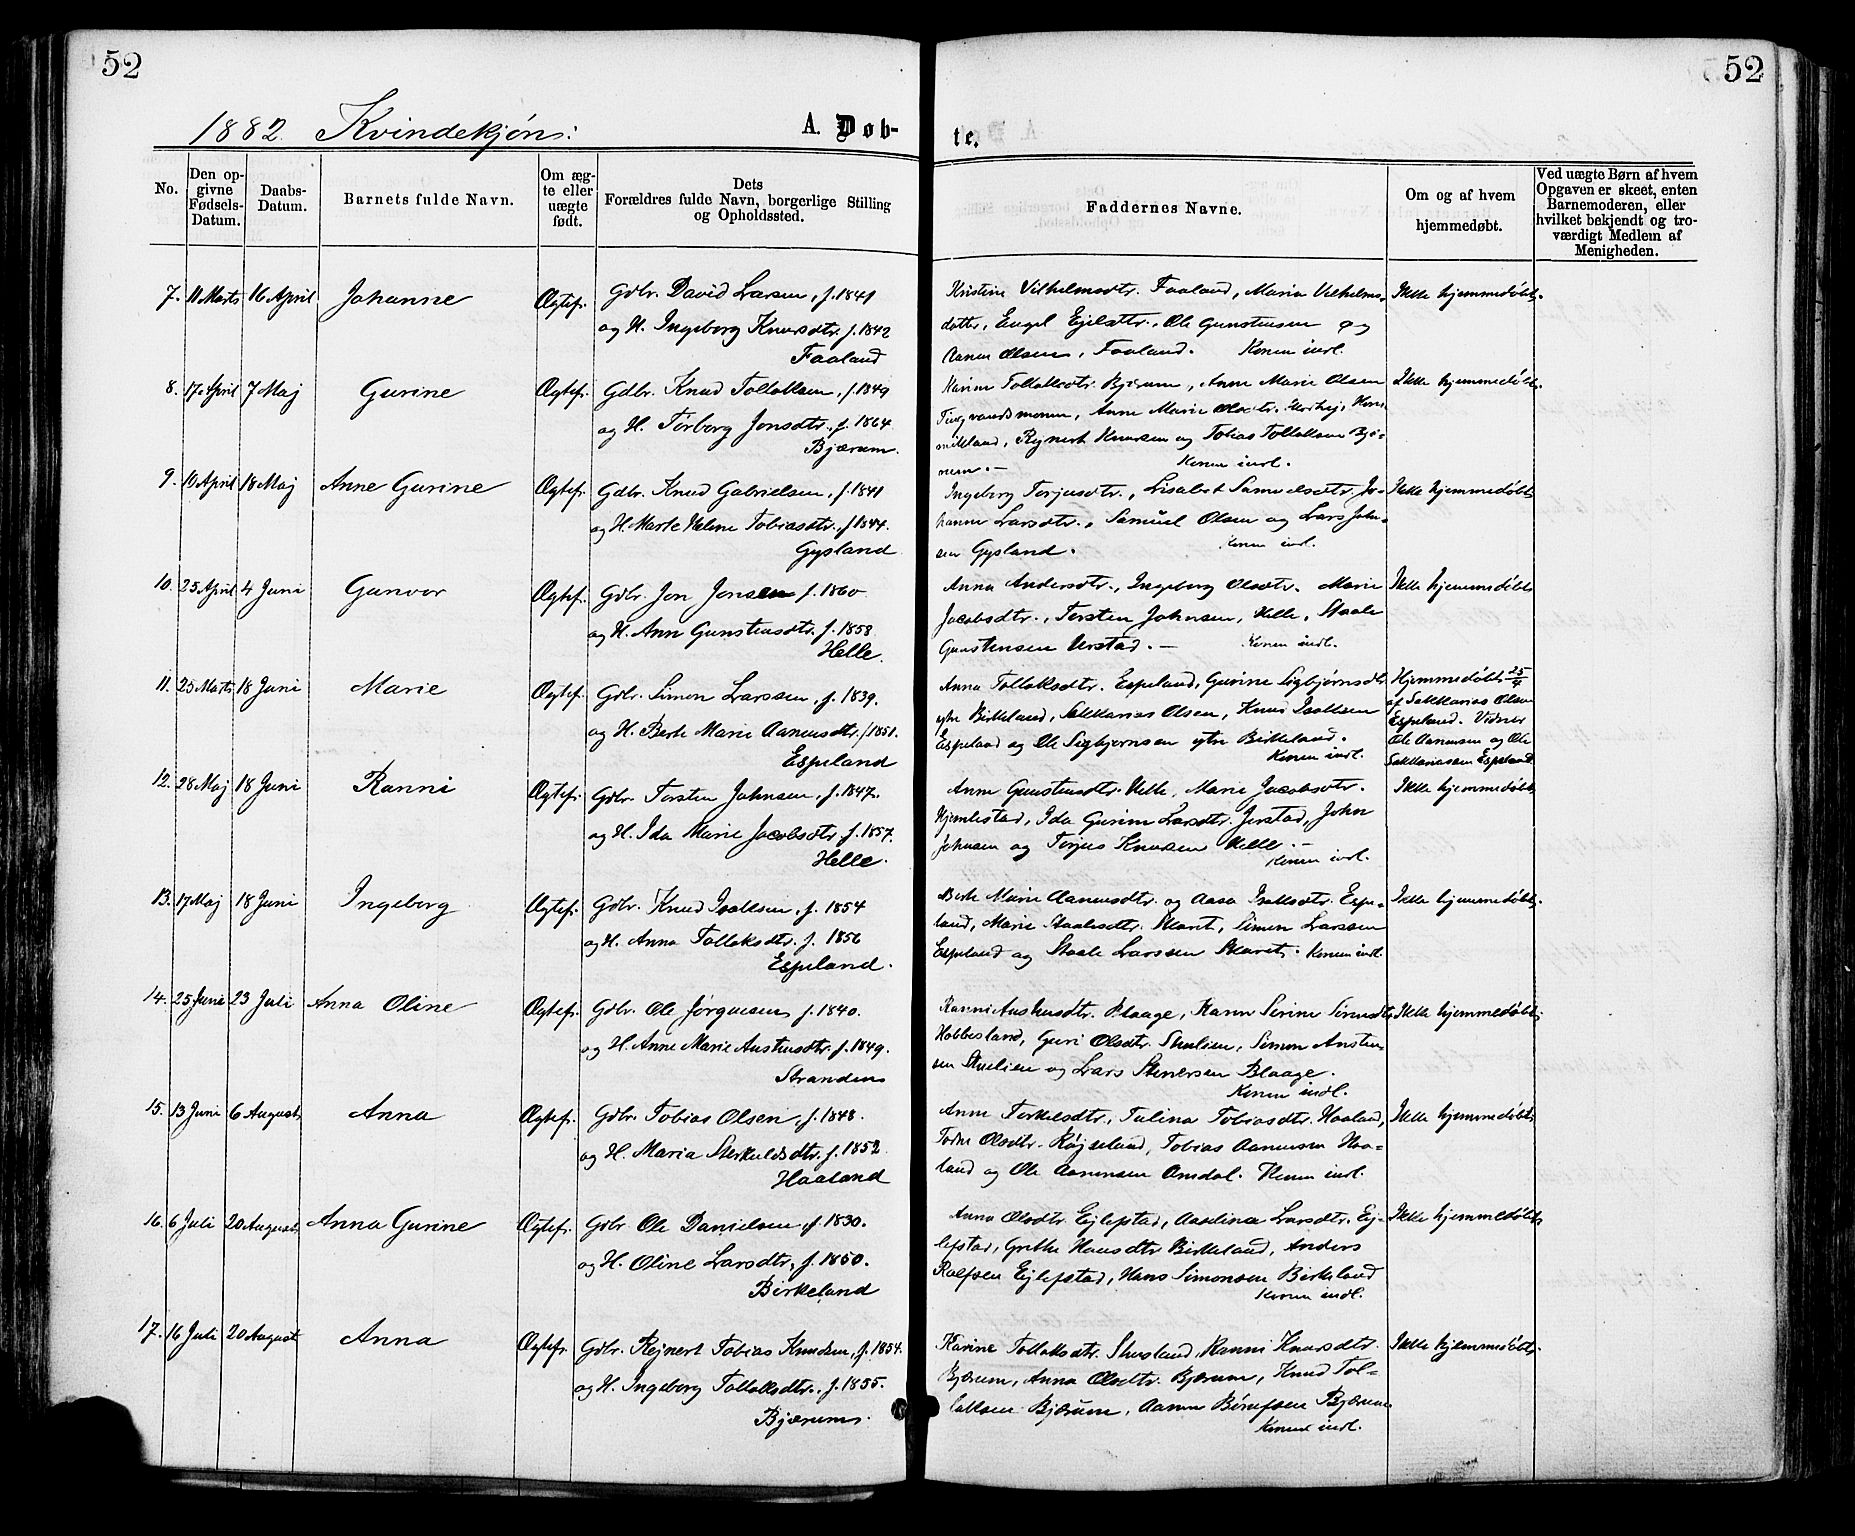 52
52
1882. Kvindekjøn:
A. Døb-
te.
No.
Den op-
givne
Fødsels-
Datum.
Daabs-
Datum.
Barnets fulde Navn.
Om æg-
te eller
uægte
født.
Dets
Forældres fulde Navn, borgerlige Stilling
og Opholdssted.
Faddernes Navne.
Om og af hvem
hjemmedøbt.
Ved uægte Børn af hvem
Opgaven er skeet, enten
Barnemoderen, eller
hvilket bekjendt og tro-
værdigt Medlem af
Menigheden.
7. 11 Marts 16 April Johanne Ægtef. Gdbr. David Larsen, f. 1841
og H. Ingeborg Knudsdtr. f. 1842
Faaland
Kristine Vilhelmsdtr. Faaland, Maria Vilhelms-
datter, Engel Ejelsdtr., Ole Gunstensen og
Aanen Olsen, Faaland. Konen indl.
Ikke hjemmedøbt.
8. 17 April 7 Maj Gurine Ægtef. Gdbr. Knud Tollaksen, f. 1849
og H. Torborg Jonsdtr. f. 1864
Bjærum.
Karine Tollaksdtr. Bjærum, Anne Marie Olsen
Anne Marie Olsdtr.
Rejnert Knudsen og Tobias Tollaksen Bjæ-
rum. — Konen indl.
Ikke hjemmedøbt
9. 10 April 18 Maj Anne Gurine Ægtef. Gdbr. Knud Gabrielsen, f. 1841
og H. Marte Helene Tobiasdtr., f. 1844.
Gysland
Ingeborg Torjusdtr., Lisabet Samuelsdtr. Jo-
hanne Larsdtr., Samuel Olsen og Lars John-
sen Gysland. Konen indl.
Ikke hjemmedøbt
10. 25 April 4 Juni Gunvor Ægtef. Gdbr. Jon Jonsen f. 1860
og H. Ann Gunstensdtr. f. 1858
Helle.
Anna Andersdtr., Ingeborg Olsdtr. Marie
Jacobsdtr., Torsten Johnsen, Helle, Staale
Gunstensen Verstad. — Konen indl.
Ikke hjemmedøbt
11. 25 Marts 18 Juni Marie Ægtef. Gdbr. Simon Larssen, f. 1839.
og H. Berte Marie Aanensdtr. f. 1851.
Espeland
Anna Tollaksdtr. Espeland, Gurine Sigbjørnsdtr
ytre Birkeland, Sakkarias Olsen, Knud Isaksen
Espeland og Ole Sigbjørnsen ytre Birkeland.
Konen indl.
Hjemmedøbt 25/4
af Sakkarias Olsen
Espeland. Vidner
Ole Aanensen og Ole
Sakkariassen Espeland
12. 28 Maj 18 Juni Ranni Ægtef. Gdbr. Torsten Johnsen, f. 1847.
og H. Ida Marie Jacobsdtr. f. 1857.
Helle.
Anne Gunstensdtr. Helle, Marie Jacobsdtr.
Hjemlestad, Ida Gurine Larsdtr. Jerstad, John
Johnsen og Torjus Knudsen Helle. —
Konen indl.
Ikke hjemmedøbt
13. 17 Maj 18 Juni Ingeborg Ægtef. Gdbr. Knud Isaksen, f. 1854
og H. Anna Tollaksdtr. f. 1856
Espeland.
Berte Marie Aanensdtr. og Aasa Isaksdtr. Espe-
land, Marie Staalesdtr. Skaret, Simon Larssen
Espeland og Staale Larssen Skaret. Konen indl.
Ikke hjemmedøbt.
14. 25 Juni 23 Juli Anna Oline Ægtef. Gdbr. Ole Jørgensen f. 1840.
og H. Anne Marie Austensdtr. f. 1849.
Stranden
Ranni Austensdtr. Blaage, Karen Serine Sørensdtr
Hobbesland, Guri Olsdtr. Skulien, Simon Austen-
sen Skulien og Lars Stenersen Blaage.
Konen indl.
Ikke hjemmedøbt
15. 13 Juni 6 August Anna Ægtef. Gdbr. Tobias Olsen, f. 1848.
og H. Maria f. 1852
Haaland
Anne Torkelsdtr., Talina Tobiasdtr. Haaland,
Olsdtr. Røjseland, Tobias Aanensen Haa-
land og Ole Aanensen Omdal. Konen indl.
Ikke hjemmedøbt
16. 6 Juli 20 August Anna Gurine Ægtef. Gdbr Ole Danielsen f. 1830.
og H. Oline Larsdtr, f. 1850.
Birkeland
Anna Olsdtr. Ejlefstad, Aaselina Larsdtr. Ej-
lefstad, Grethe Hansdtr Birkeland, Anders
Rolfsen Ejlefstad, Hans Simonsen Birkeland
Konen indl.
Ikke hjemmedøbt
17. 16 Juli 20 August Anna Ægtef. Gdbr. Rejnert Tobias Knudsen, f. 1854.
og H. Ingeborg Tollaksdtr., f. 1855.
Bjærum.
Karine Tollaksdtr. Skusland, Ranni Knudsdtr.
Bjærum, Anna Olsdtr. Bjærum, Knud Tol-
laksen Bjærum, Aanen Børufsen Bjærum
Konen indl.
Ikke hjemmedøbt.